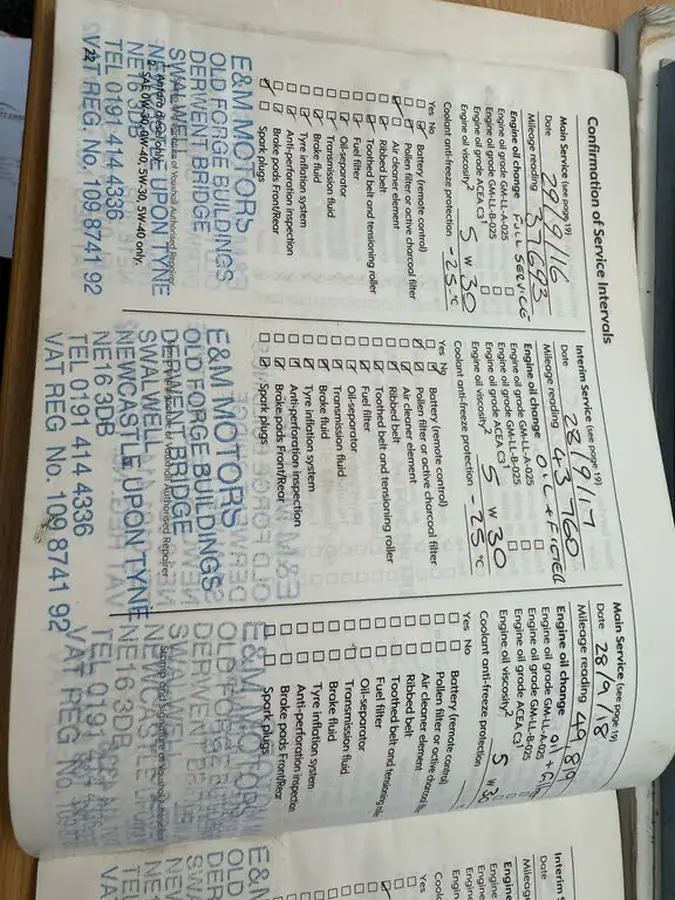 Confirmation of Service Intervals
Main Service (see page 19)
Date 29/9/16
Mileage reading 37693
Engine oil change FULL SERVICE
Engine oil grade GM-LL-A-025
Engine oil grade GM-LL-B-025
Engine oil grade ACEA C3¹
Engine oil viscosity² 5 W 30
Coolant anti-freeze protection -25 °C
Yes No
Battery (remote control)
Pollen filter or active charcoal filter
Air cleaner element
Ribbed belt
Toothed belt and tensioning roller
Fuel filter
Oil-separator
Transmission fluid
Brake fluid
Tyre inflation system
Anti-perforation inspection
Brake pads Front/Rear
Spark plugs
E&M MOTORS
OLD FORGE BUILDINGS
DERWENT BRIDGE
SWALWELL
NEWCASTLE UPON TYNE
NE16 3DB
TEL 0191 414 4336
VAT REG. No. 109 8741 92
SAE 0W-30, 0W-40, 5W-30, 5W-40 only.
22
Interim Service (see page 19)
Date 28/9/17
Mileage reading 43760
Engine oil change OIL + FILTER
Engine oil grade GM-LL-A-025
Engine oil grade GM-LL-B-025
Engine oil grade ACEA C3¹
Engine oil viscosity² 5 W 30
Coolant anti-freeze protection -25 °C
Yes No
Battery (remote control)
Pollen filter or active charcoal filter
Air cleaner element
Ribbed belt
Toothed belt and tensioning roller
Fuel filter
Oil-separator
Transmission fluid
Brake fluid
Tyre inflation system
Anti-perforation inspection
Brake pads Front/Rear
Spark plugs
E&M MOTORS
OLD FORGE BUILDINGS
DERWENT BRIDGE
SWALWELL
NEWCASTLE UPON TYNE
NE16 3DB
TEL 0191 414 4336
VAT REG. No. 109 8741 92
Main Service (see page 19)
Date 28/9/18
Mileage reading 49,819
Engine oil change oil +
Engine oil grade GM-LL-A-025
Engine oil grade GM-LL-B-025
Engine oil grade ACEA C3¹
Engine oil viscosity² 5 W 30
Coolant anti-freeze protection
Yes No
Battery (remote control)
Pollen filter or active charcoal
Air cleaner element
Ribbed belt
Toothed belt and tensioning
Fuel filter
Oil-separator
Transmission fluid
Brake fluid
Tyre inflation system
Anti-perforation inspection
Brake pads Front/Rear
Spark plugs
E&M MOTORS
OLD FORGE
DERWENT
SWALWELL
NEWCASTLE
NE16 3DB
TEL 0191
VAT REG No. 109
Interim
Date
Mileage
Engine
Yes
E&M
OLD